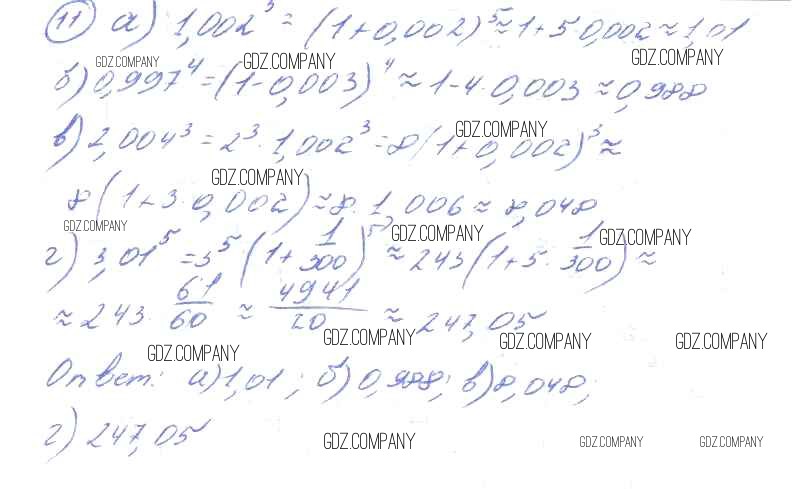 11 а) 1,002³ = (1+0,002)⁵ ≈ 1+5 0,002 ≈ 1,01
GDZ.COMPANY GDZ.COMPANY GDZ.COMPANY
б) 0,997⁴ = (1-0,003)⁴ ≈ 1-4·0,003 ≈ 0,988
в) 2,004³ = 2³·1,002³ = 8(1+0,002)³ ≈
GDZ.COMPANY
GDZ.COMPANY
8(1+3·0,002) ≈ 8·1,006 ≈ 8,048
GDZ.COMPANY GDZ.COMPANY GDZ.COMPANY
г) 3,01⁵ = 3⁵(1+1/300)⁵ ≈ 243(1+5·1/300) ≈
≈ 243·61/60 ≈ 4941/20 ≈ 247,05
GDZ.COMPANY GDZ.COMPANY GDZ.COMPANY GDZ.COMPANY
Ответ: а) 1,01; б) 0,988; в) 8,048;
г) 247,05
GDZ.COMPANY GDZ.COMPANY GDZ.COMPANY